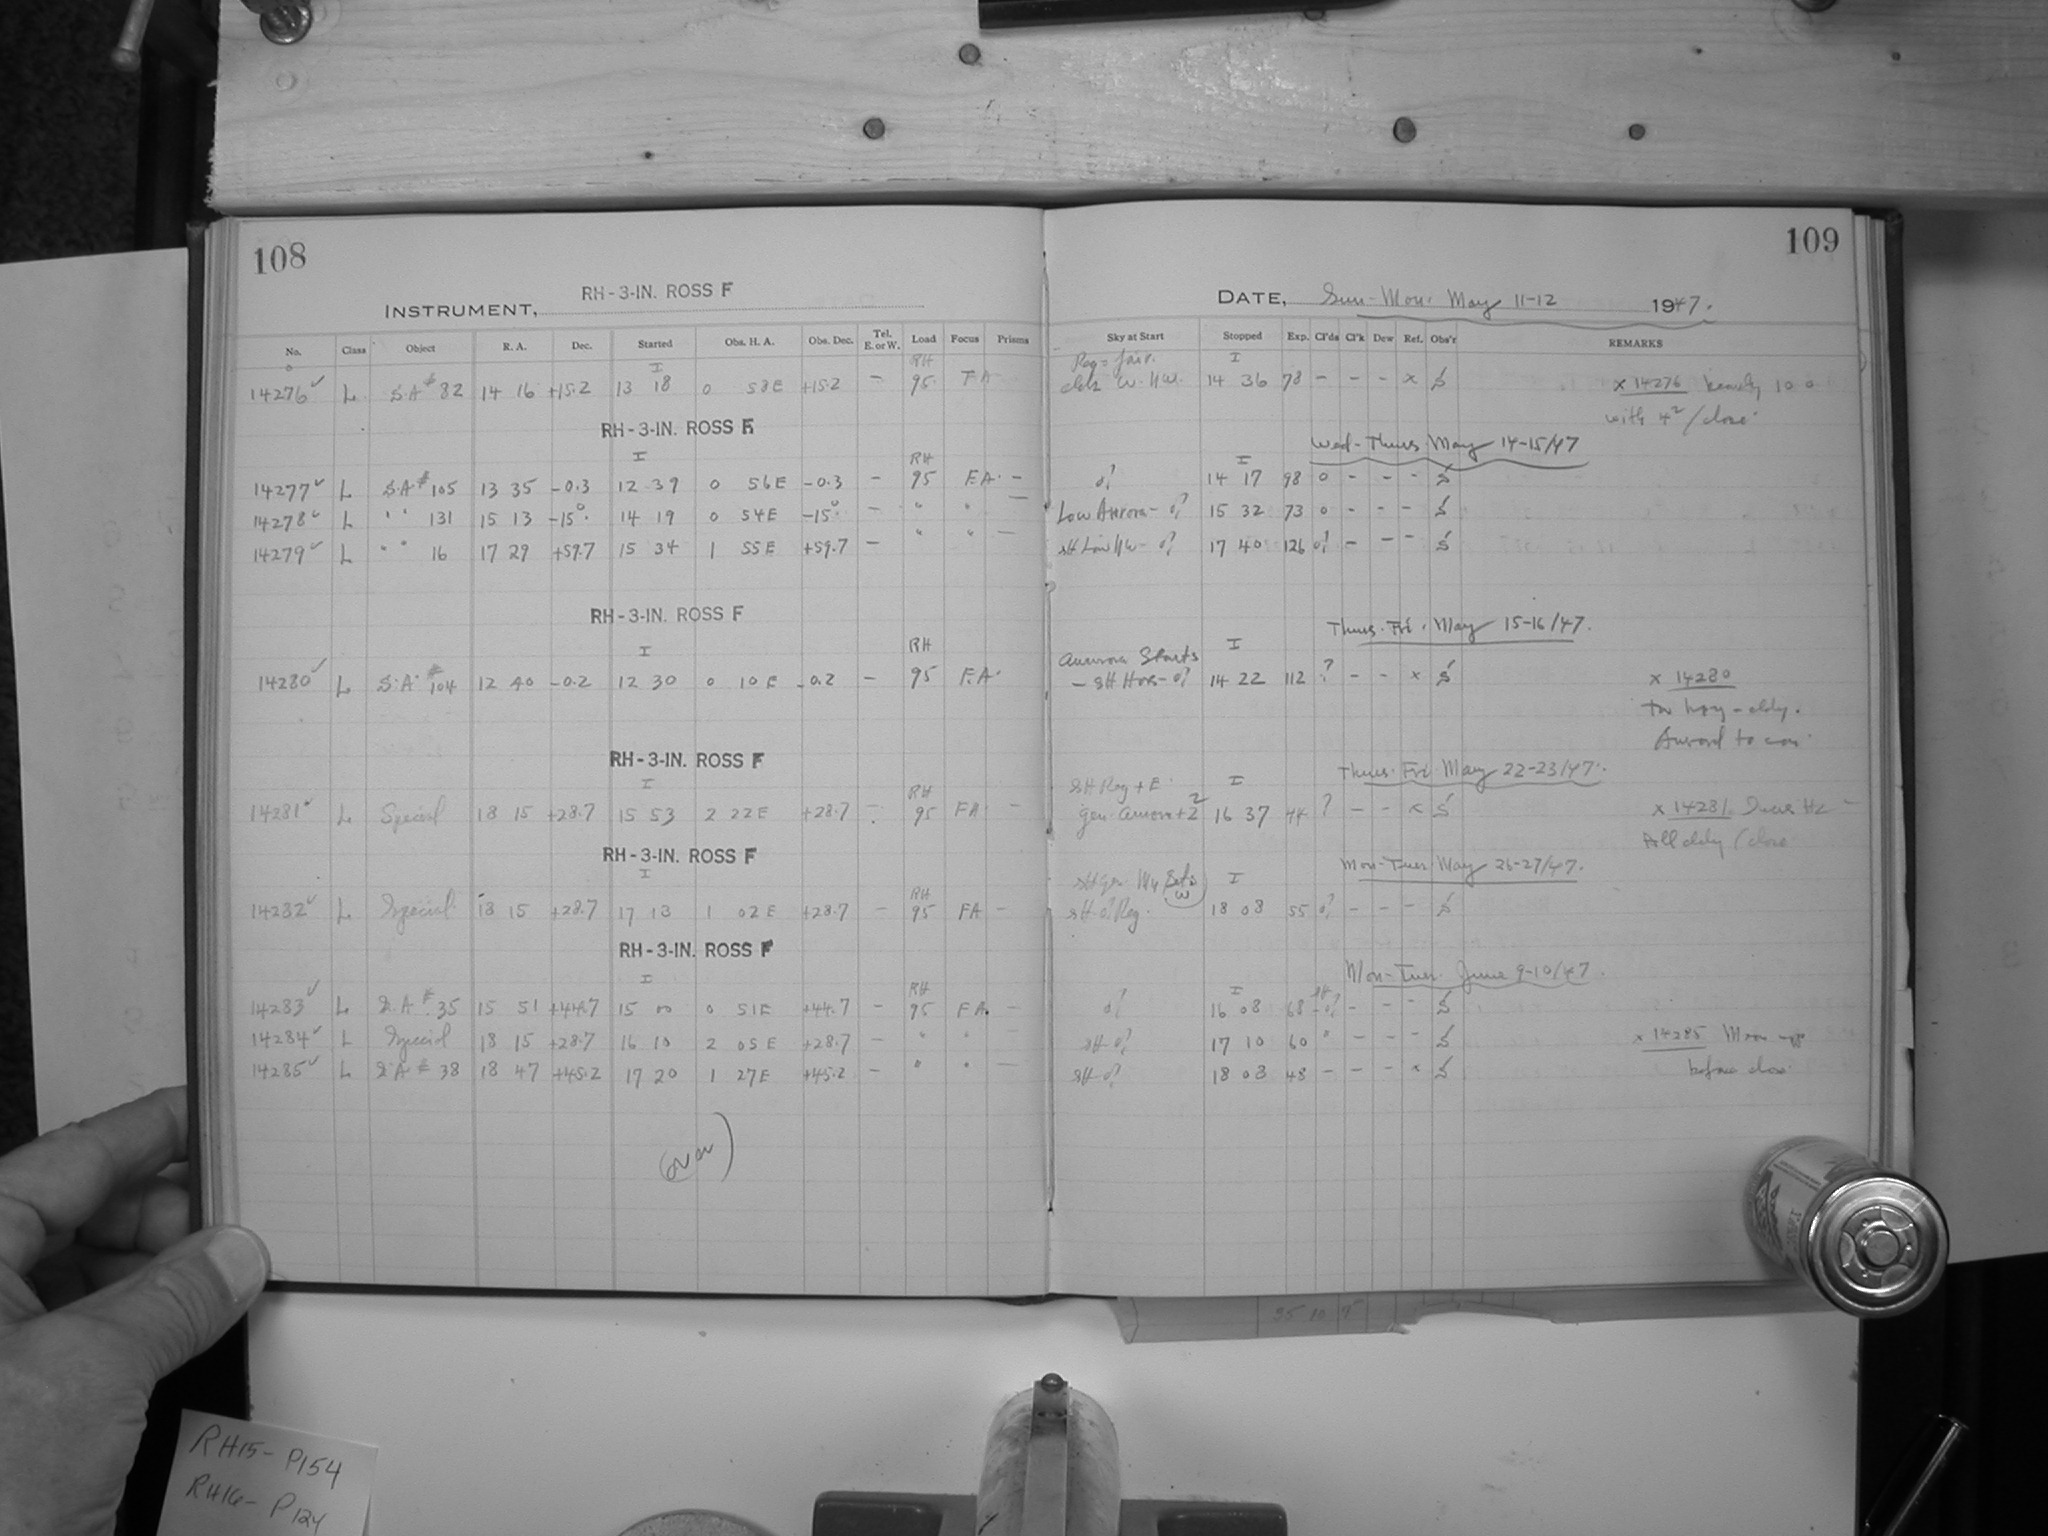 108
INSTRUMENT, RH-3-IN. ROSS F
No. Class Object R. A. Dec. Started Obs. H. A. Obs. Dec. Tel. E. or W. Load Focus Prisms
I RH
14276 ✓ L S.A # 82 14 16 +15.2 13 18 0 58E +15.2 - 95 FA
RH-3-IN. ROSS F
I RH
14277 ✓ L S.A # 105 13 35 -0.3 12 39 0 56E -0.3 - 95 FA. -
14278 ✓ L " " 131 15 13 -15° 14 19 0 54E -15° - " " -
14279 ✓ L " " 16 17 29 +59.7 15 34 1 55E +59.7 - " " -
RH-3-IN. ROSS F
I RH
14280 ✓ L S.A. # 104 12 40 -0.2 12 30 0 10E -0.2 - 95 FA.
RH-3-IN. ROSS F
I RH
14281 ✓ L Special 18 15 +28.7 15 53 2 22E +28.7 - 95 FA. -
RH-3-IN. ROSS F
I RH
14282 ✓ L Special 18 15 +28.7 17 13 1 02E +28.7 - 95 FA -
RH-3-IN. ROSS F
I RH
14283 ✓ L S.A # 35 15 51 +44.7 15 00 0 51E +44.7 - 95 FA. -
14284 ✓ L Special 18 15 +28.7 16 10 2 05E +28.7 - " " -
14285 ✓ L S.A # 38 18 47 +45.2 17 20 1 27E +45.2 - " " -
(over)
109
DATE, Sun-Mon. May 11-12 1947.
Sky at Start Stopped Exp. Cl'ds Cl'k Dew Ref. Obs'r REMARKS
Reg = fair. I
W. 14 36 78 - - - x S x 14276
with 4² / close
Wed-Thurs. May 14-15/47
I
o? 14 17 98 0 - - - S
Low Aurora - o? 15 32 73 0 - - - S
Low - o? 17 40 126 o? - - - S
Thurs-Fri. May 15-16/47.
Aurora Starts I
- o? 14 22 112 ? - - x S x 14280
Aurora to
Thurs-Fri. May 22-23/47.
Reg + E. I
gen. aurora + 2² 16 37 44 ? - - x S x 14281
/ close
Mon-Tues May 26-27/47.
I
o? Reg. 18 08 55 o? - - - S
Mon-Tues. June 9-10/47.
I
o? 16 08 68 o? - - - S
o? 17 10 60 - - - S x 14285 Moon up
o? 18 08 48 - - - x S before close
35 10 9
RH15- P154
RH16- P124